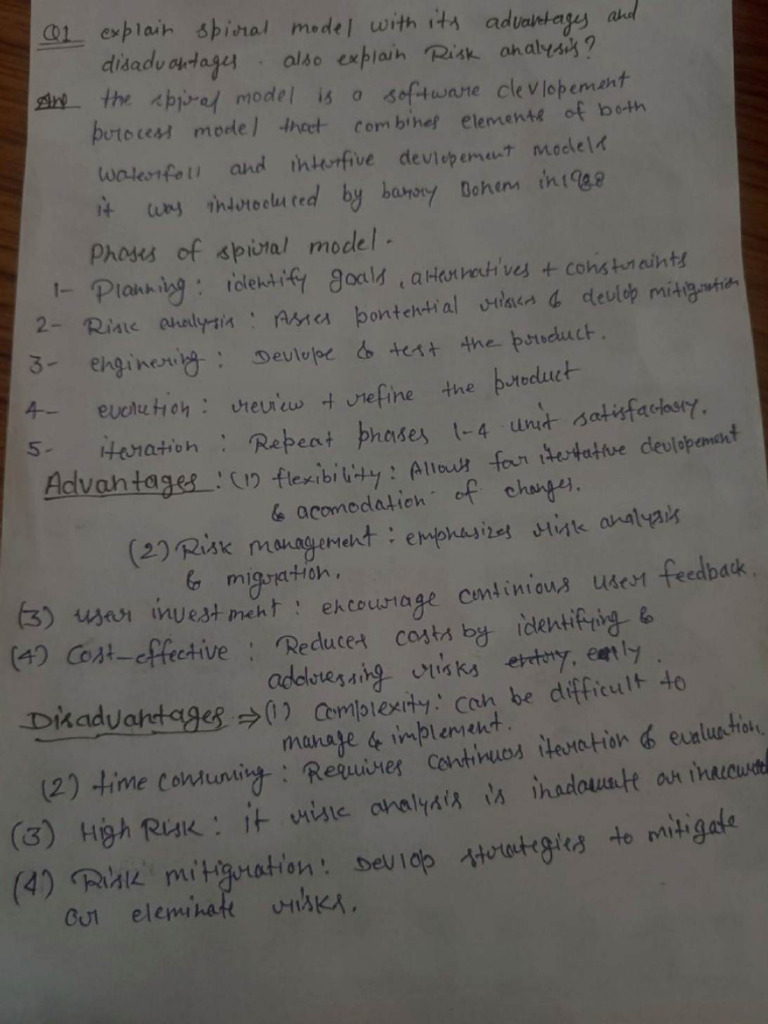 Q1 explain spiral model with its advantages and
disadvantages. also explain Risk analysis?
Ans the spiral model is a software devlopement
process model that combines elements of both
waterfall and interfive devlopement models
it was introduced by barry Bohem in 1988
Phases of spiral model.
1- Planning: identify goals, alternatives + constraints
2- Risk analysis: Asses pontential risks & devlop mitigration
3- enginering: Devlope & test the product.
4- evolution: review + refine the product
5- iteration: Repeat phases 1-4 unit satisfactory.
Advantages: (1) flexibility: Allows for itertative devlopement
& acomodation of changes.
(2) Risk management: emphasizes risk analysis
& migration.
(3) user investment: encourage continious user feedback.
(4) Cost-effective: Reduces costs by identifying &
addressing risks early.
Disadvantages ⇒ (1) complexity: can be difficult to
manage & implement.
(2) time consuming: Requires continuos iteration & evaluation.
(3) High Risk: if risk analysis is inadaquate or inaccurate
(4) Risk mitigration: Devlop strategies to mitigate
or eleminate risks.